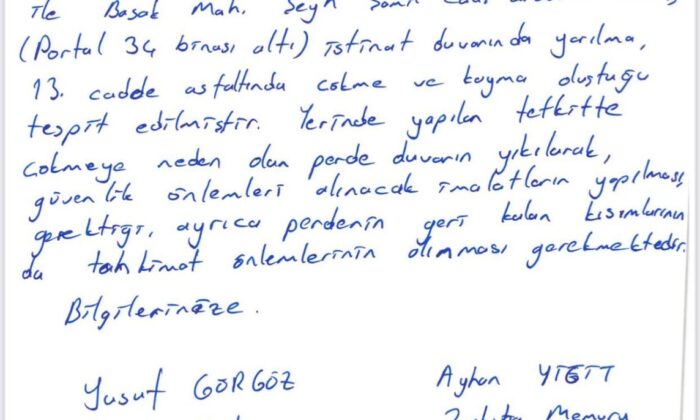 ile Başak Mah. Şeyh Şamil
(Portal 34 binası altı) istinat duvarında yarılma,
13. cadde asfaltında çökme ve kayma oluştuğu
tespit edilmiştir. Yerinde yapılan tetkitte
çökmeye neden olan perde duvarın yıkılarak,
güvenlik önlemleri alınacak imalatların yapılması,
gerektiği, ayrıca perdenin geri kalan kısımlarının
da tahkimat önlemlerinin alınması gerekmektedir.
Bilgilerinize.
Yusuf GÖRGÖZ
Ayhan YİĞİT
Memuru